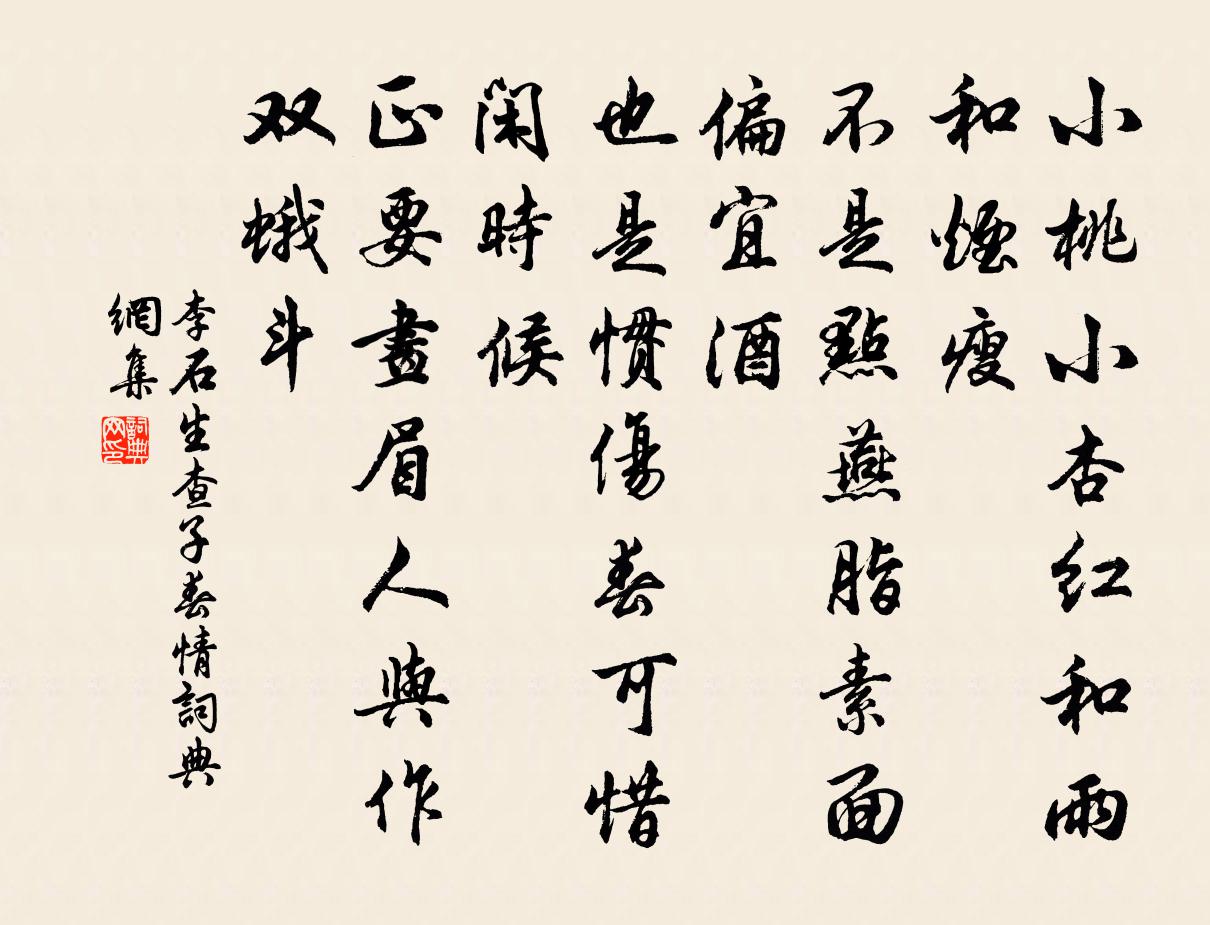 小桃小杏红和雨
和煙瘦
不是點燕脂素面
偏宜酒
也是慣傷春可惜
閑時候
正要畫眉人與作
双蛾斗
李石生查子春情詞典
網集
詞典
网印